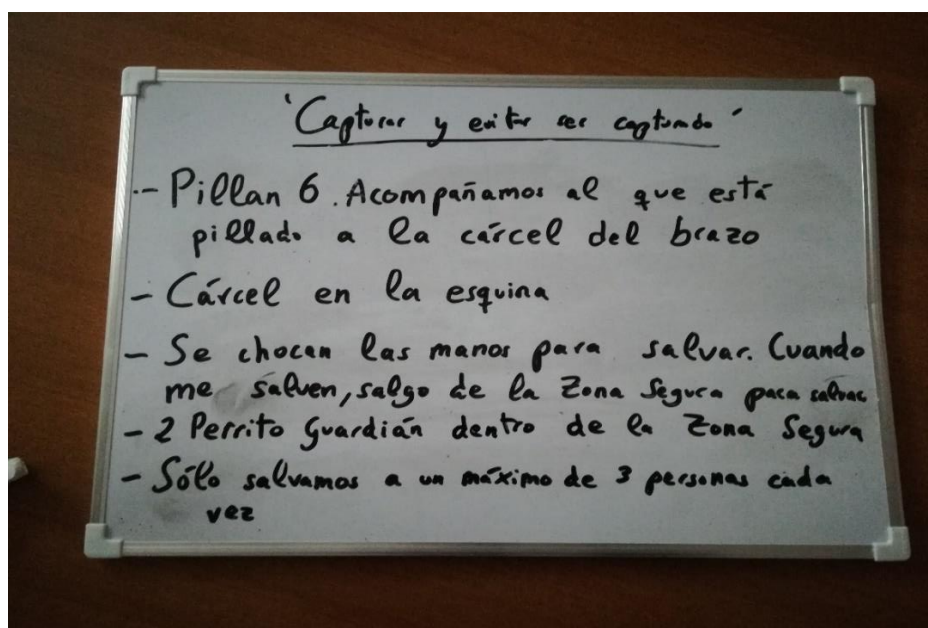 'Capturar y evitar ser capturado'
- Pillan 6. Acompañamos al que está
pillado a la cárcel del brazo
- Cárcel en la esquina
- Se chocan las manos para salvar. Cuando
me salven, salgo de la Zona Segura para salvar
- 2 Perrito Guardián dentro de la Zona Segura
- Sólo salvamos a un máximo de 3 personas cada
vez